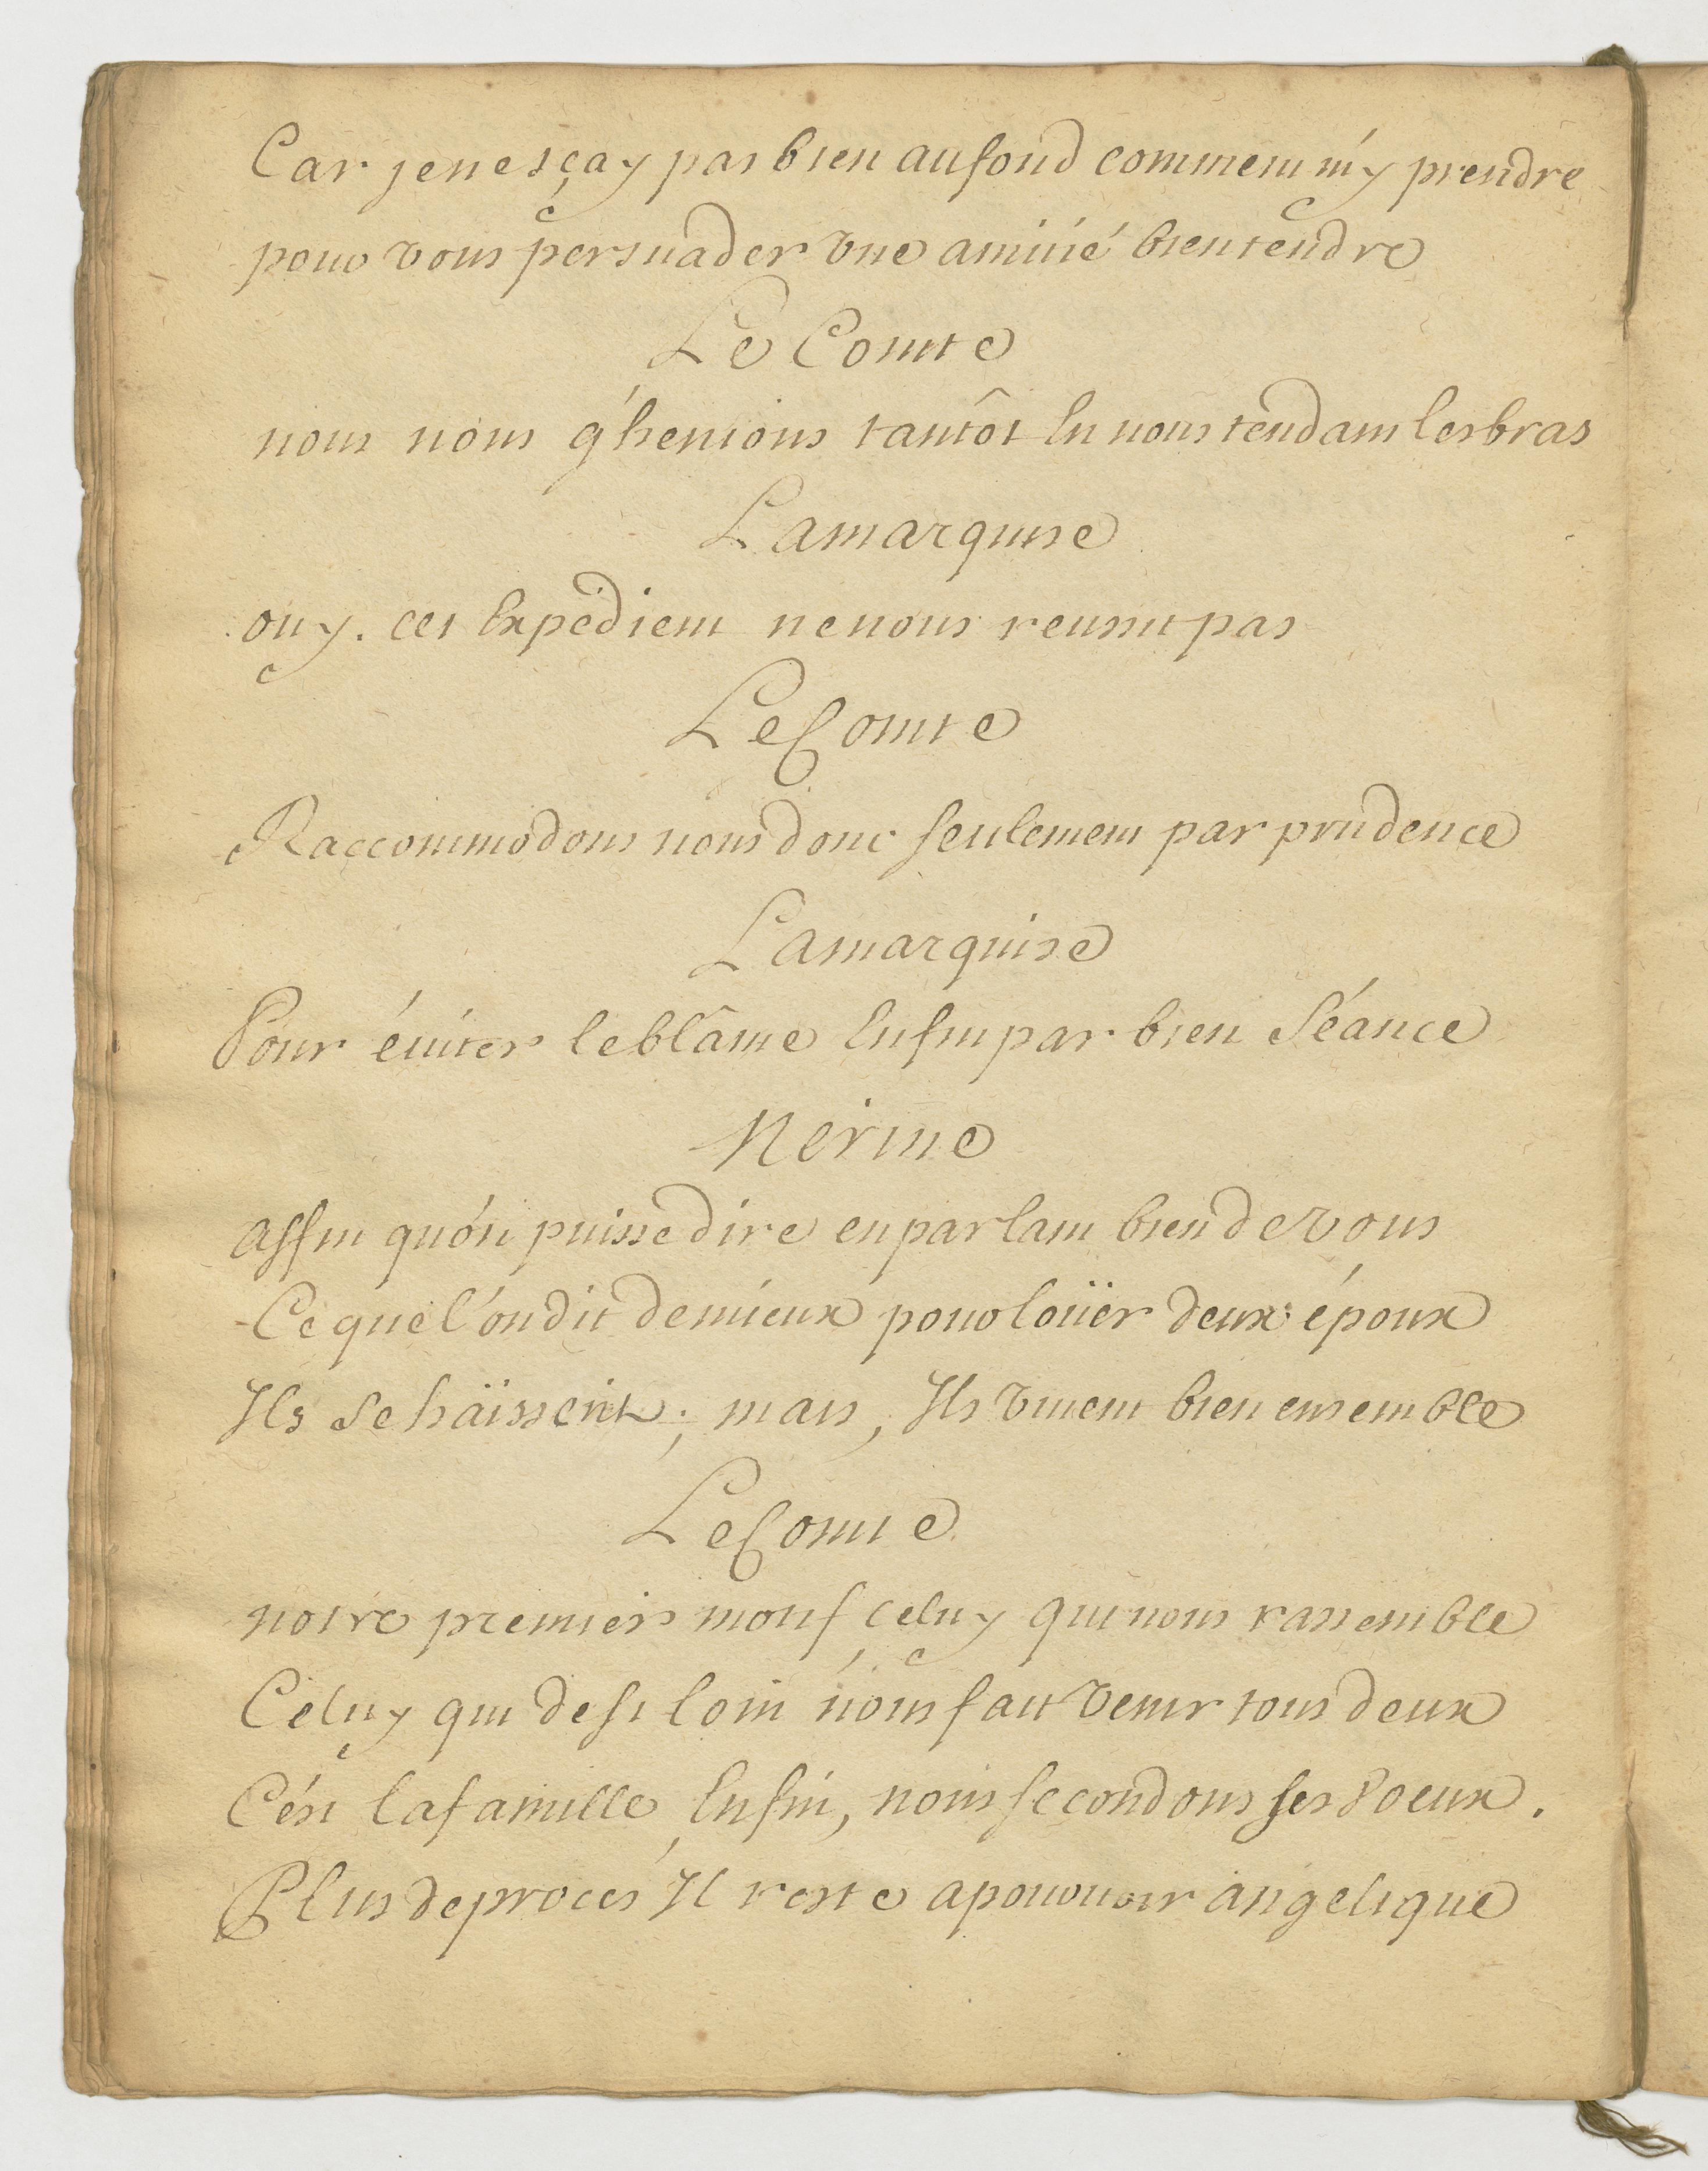 Car je ne sçay pas bien au fond comment m'y prendre
pour vous persuader une amitié bien tendre
Le Comte
nous nous g'henions tantôt En nous tendant les bras
La marquise
ouy. cet Expédient ne nous reussit pas
Le Comte
Raccommodons nous donc seulement par prudence
La marquise
Pour éviter le blâme Enfin par bien séance
Nerine
affin qu'on puisse dire en parlant bien de vous
Ce que l'on dit de mieux pour loüer deux époux
Ils se häissent; mais, Ils vivent bien ensemble
Le Comte
notre premier motif, celuy qui nous rassemble
Celuy qui de si loin nous fait venir tous deux
C'est la famille, Enfin, nous secondons ses voeux.
Plus de procés Il reste a pourvoir angelique